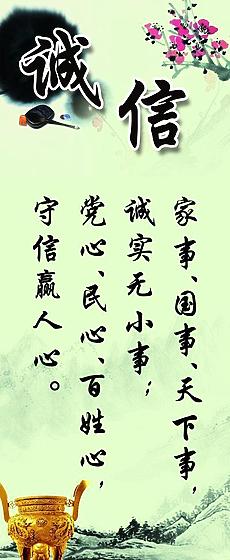 诚信
家事、国事、天下事，
诚实无小事；
党心、民心、百姓心，
守信赢人心。